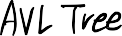 AVL Tree